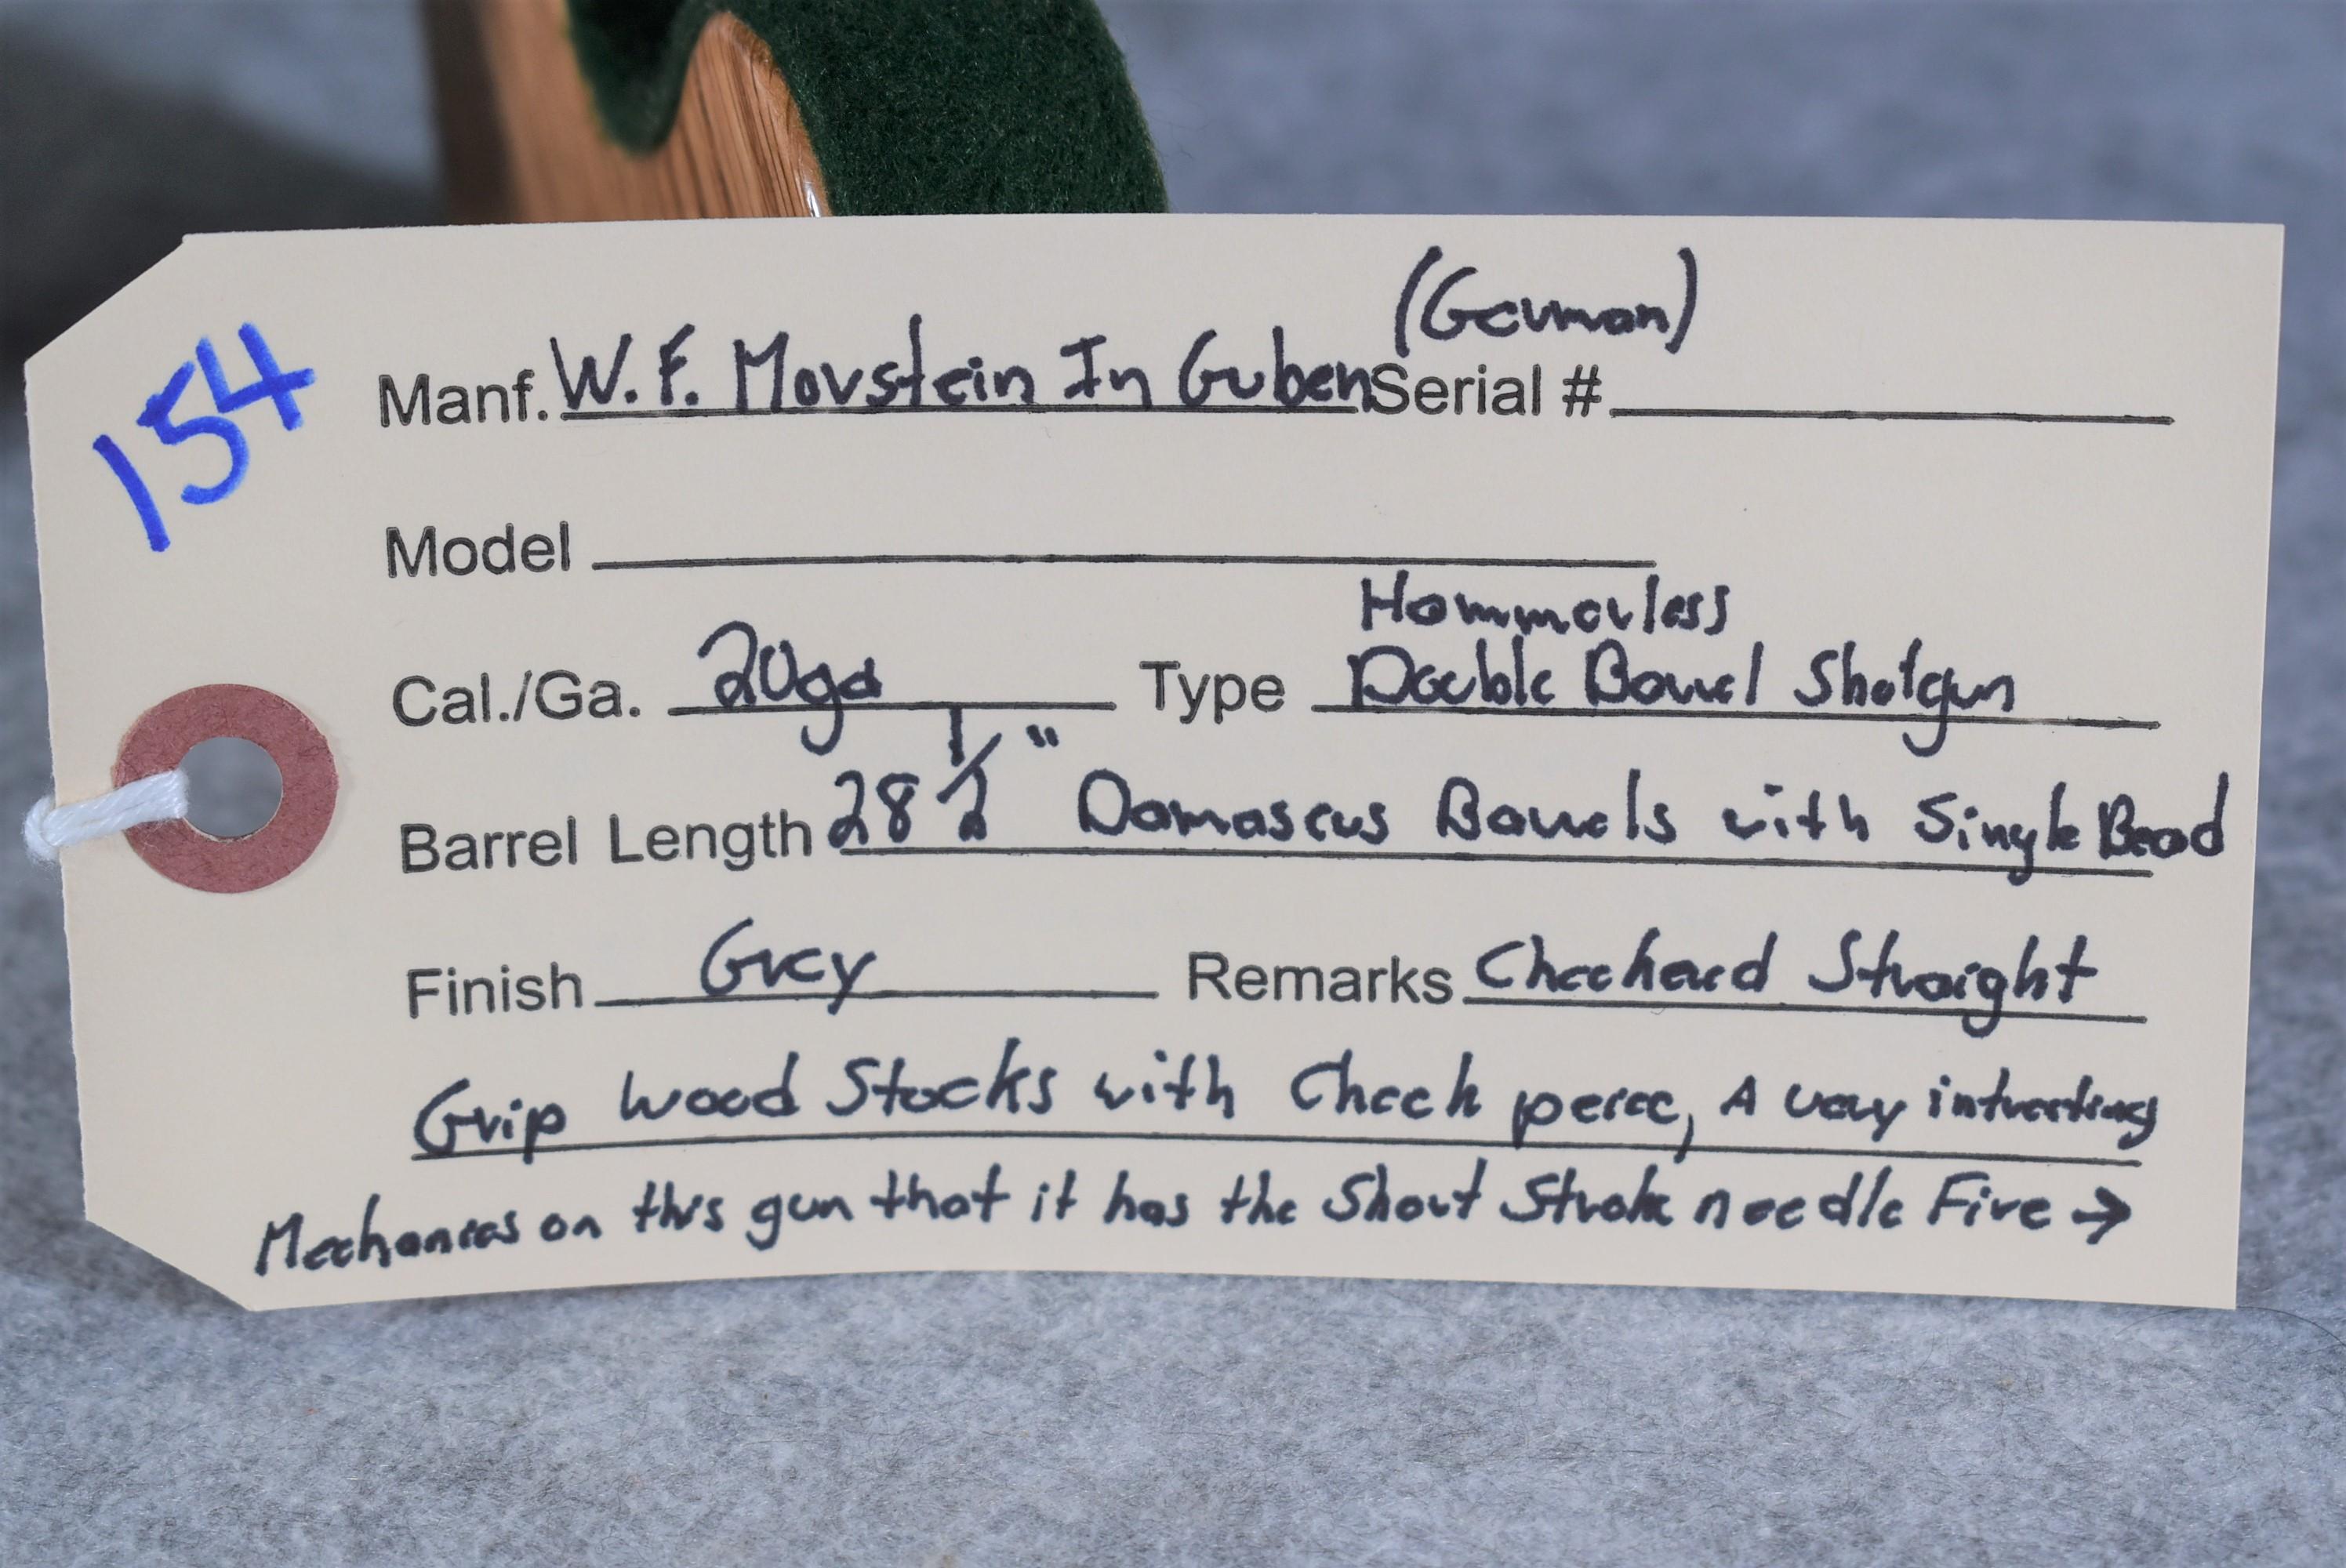 154
(German)
Manf. W. F. Morstein In Guben Serial #
Model
Hammerless
Cal./Ga. 20ga Type Double Barrel Shotgun
Barrel Length 28 1/2" Damascus Barrels with Single Bead
Finish Grey Remarks Checkered Straight
Grip Wood Stocks with Cheek peice, A very intresting
Mechanics on this gun that it has the Short Stroke needle Fire →